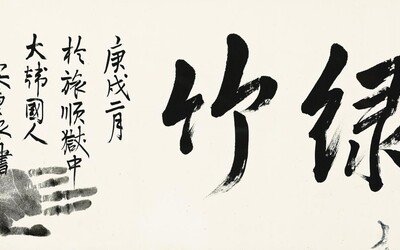 綠竹
庚戌二月
於旅順獄中
大韓國人
書